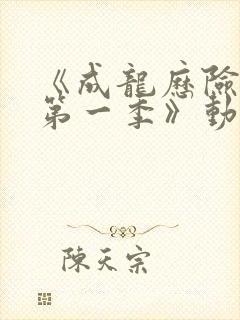 《成龍歷險
第一季》動
陳天宗